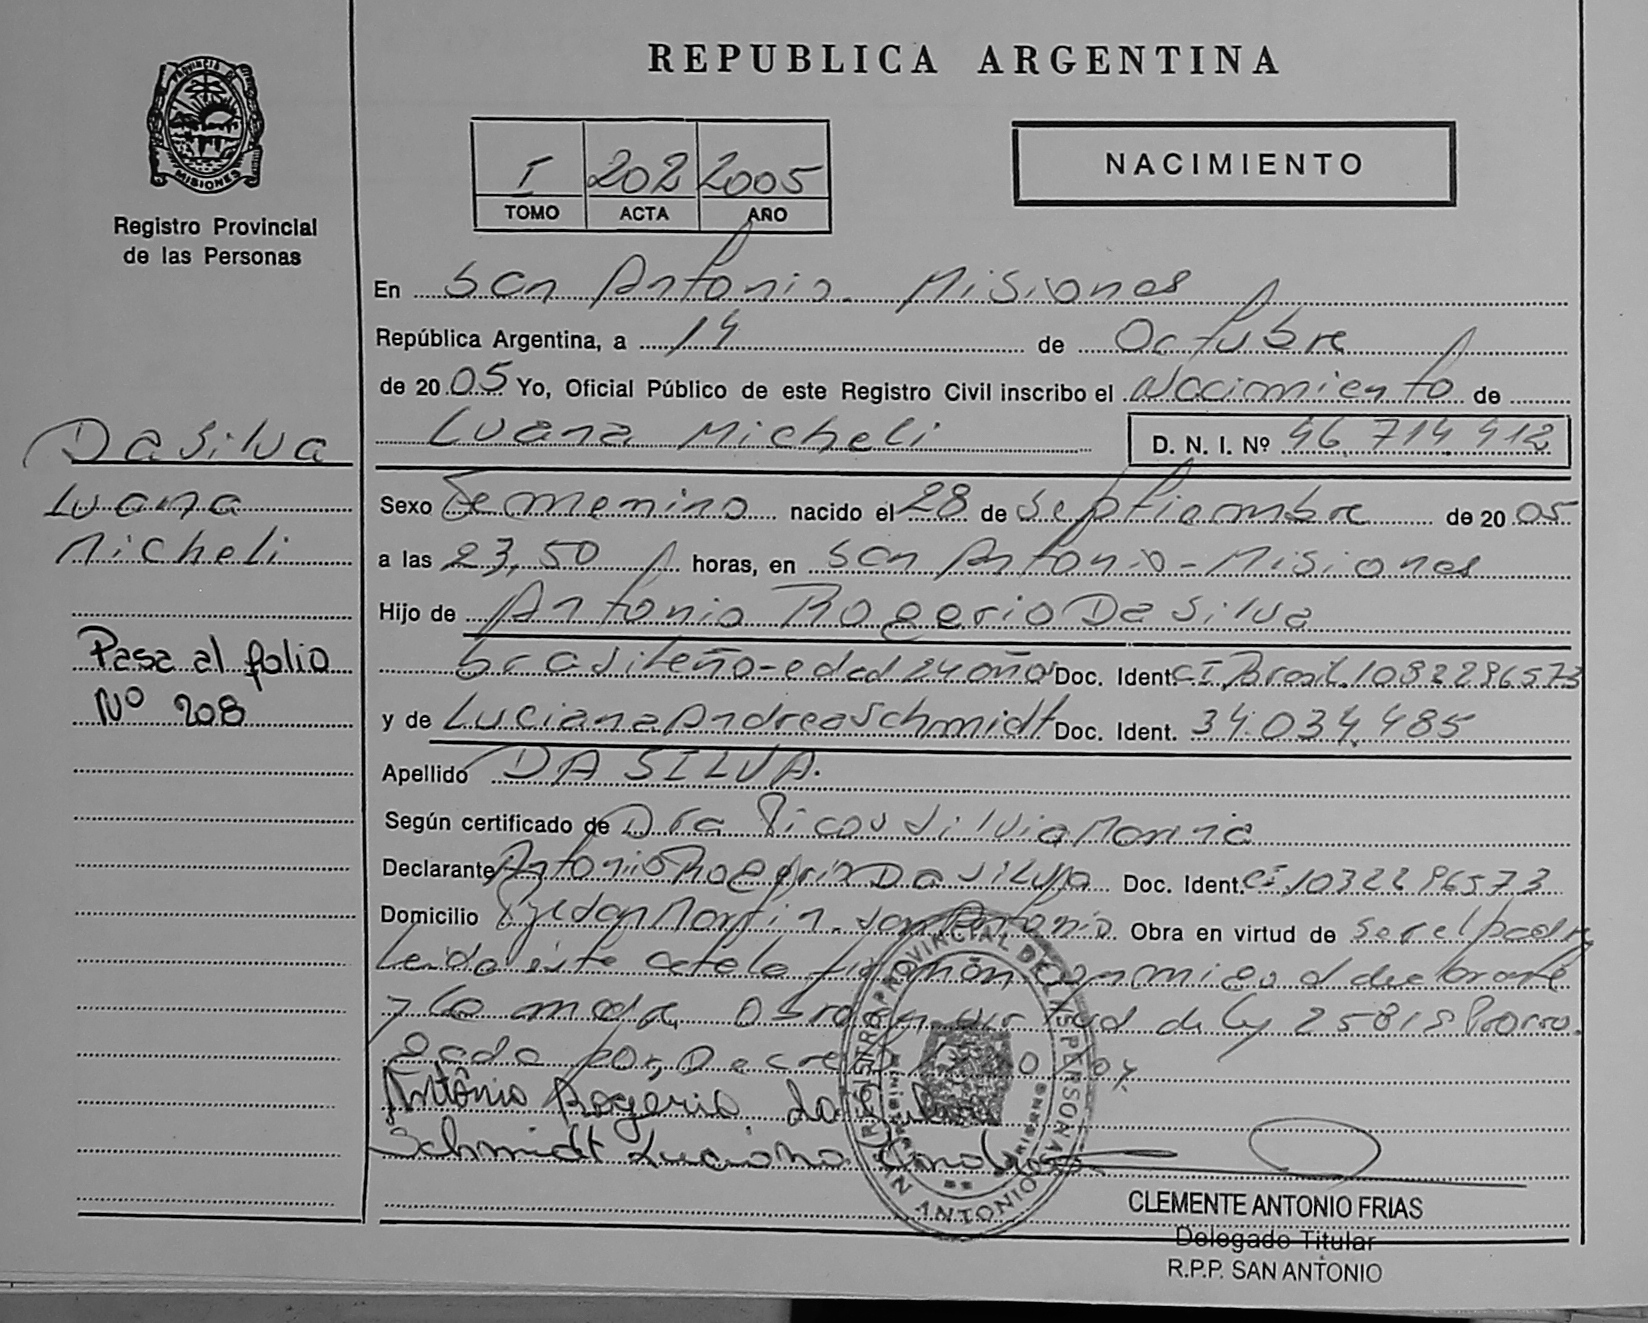 REPUBLICA ARGENTINA
PROVINCIA DE
MISIONES
Registro Provincial
de las Personas
I 202 2005
TOMO ACTA AÑO
NACIMIENTO
En San Antonio. Misiones
República Argentina, a 14 de Octubre
de 20 05 Yo, Oficial Público de este Registro Civil inscribo el Nacimiento de
Luana Micheli D. N. I. Nº 46.714.412
Da Silva
Luana
Micheli
Pasa al folio
Nº 208
Sexo Femenino nacido el 28 de Septiembre de 20 05
a las 23,50 horas, en San Antonio - Misiones
Hijo de Antonio Rogerio Da Silva
brasileño - edad 24 años Doc. Ident. CI, Brasil.
y de Luciana Andrea Schmidt Doc. Ident. 34.034.485
Apellido DA SILVA.
Según certificado de Dra Silvia
Declarante Antonio Rogerio Da Silva Doc. Ident. CI
Domicilio San Antonio Obra en virtud de ser el padre
Leida este acta la firman conmigo el declarante
y la madre Obra en virtud de Ley 25819 Prorro
gada por, Decreto
Antônio Rogerio da Silva
Schmidt Luciana Andrea
REGISTRO PROVINCIAL DE LAS PERSONAS
SAN ANTONIO
MISIONES
CLEMENTE ANTONIO FRIAS
Delegado Titular
R.P.P. SAN ANTONIO